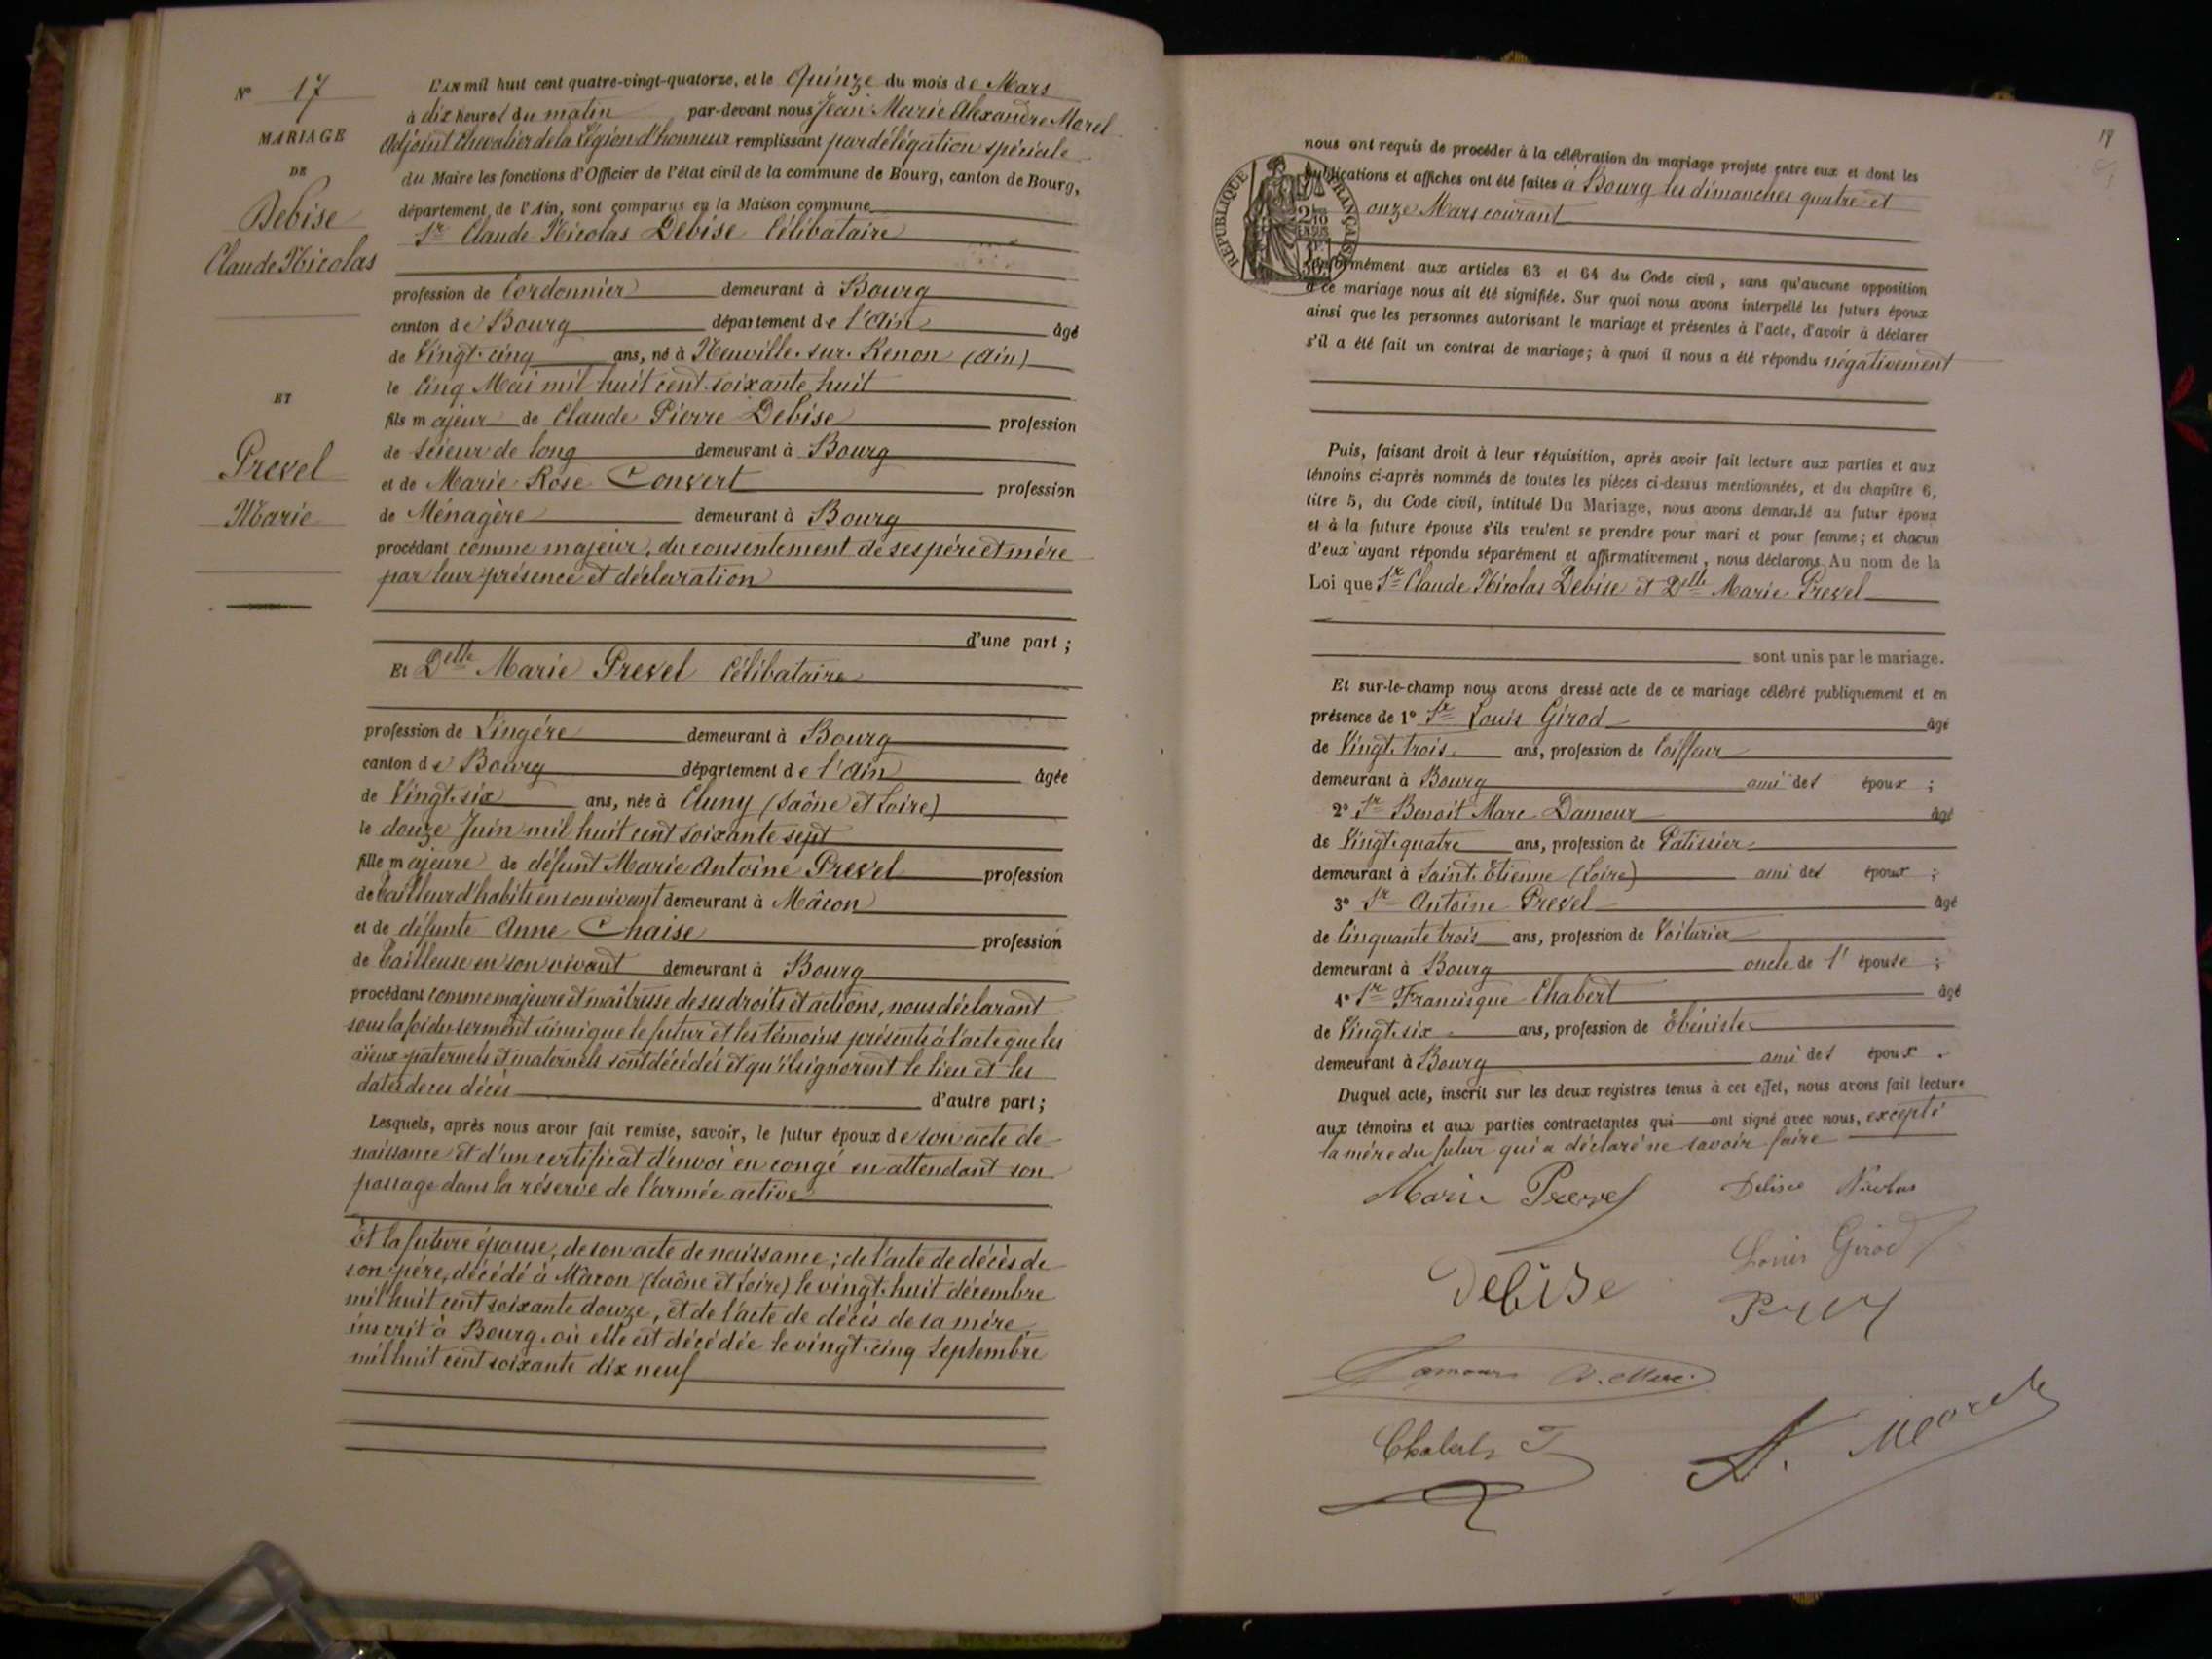 N° 17
MARIAGE
DE
Debise
Claude Nicolas
ET
Prevel
Marie
L'AN mil huit cent quatre-vingt-quatorze, et le Quinze du mois de Mars
à dix heures du matin par-devant nous Jean Marie Alexandre Morel
Adjoint Chevalier de la Légion d'honneur remplissant par délégation spéciale
du Maire les fonctions d'Officier de l'état civil de la commune de Bourg, canton de Bourg,
département de l'Ain, sont comparus en la Maison commune
Sr Claude Nicolas Debise Célibataire
profession de Cordonnier demeurant à Bourg
canton de Bourg département de l'Ain âgé
de Vingt-cinq ans, né à Neuville-sur-Renon (Ain)
le cinq Mai mil huit cent soixante huit
fils majeur de Claude Pierre Debise profession
de scieur de long demeurant à Bourg
et de Marie Rose Convert profession
de Ménagère demeurant à Bourg
procédant comme majeur, du consentement de ses père et mère
par leur présence et déclaration
d'une part ;
Et Delle Marie Prevel Célibataire
profession de Lingère demeurant à Bourg
canton de Bourg département de l'Ain âgée
de Vingt-six ans, née à Cluny (Saône et Loire)
le douze Juin mil huit cent soixante sept
fille majeure de défunt Marie Antoine Prevel profession
de Tailleur d'habits en son vivant demeurant à Mâcon
et de défunte Anne Chaise profession
de Tailleuse en son vivant demeurant à Bourg
procédant comme majeure et maîtresse de ses droits et actions, nous déclarant
sous la foi du serment ainsi que le futur et les témoins présents à l'acte que les
aïeux paternels et maternels sont décédés et qu'ils ignorent le lieu et les
dates de ces décès d'autre part ;
Lesquels, après nous avoir fait remise, savoir, le futur époux de son acte de
naissance et d'un certificat d'envoi en congé en attendant son
passage dans la réserve de l'armée active
Et la future épouse, de son acte de naissance ; de l'acte de décès de
son père, décédé à Mâcon (Saône et Loire) le vingt-huit décembre
mil huit cent soixante douze, et de l'acte de décès de sa mère,
inscrit à Bourg, où elle est décédée le vingt-cinq Septembre
mil huit cent soixante dix neuf
17
RÉPUBLIQUE FRANÇAISE
nous ont requis de procéder à la célébration du mariage projeté entre eux et dont les
publications et affiches ont été faites à Bourg les dimanches quatre et
onze Mars courant
conformément aux articles 63 et 64 du Code civil, sans qu'aucune opposition
à ce mariage nous ait été signifiée. Sur quoi nous avons interpellé les futurs époux
ainsi que les personnes autorisant le mariage et présentes à l'acte, d'avoir à déclarer
s'il a été fait un contrat de mariage ; à quoi il nous a été répondu négativement
Puis, faisant droit à leur réquisition, après avoir fait lecture aux parties et aux
témoins ci-après nommés de toutes les pièces ci-dessus mentionnées, et du chapitre 6,
titre 5, du Code civil, intitulé Du Mariage, nous avons demandé au futur époux
et à la future épouse s'ils veulent se prendre pour mari et pour femme ; et chacun
d'eux ayant répondu séparément et affirmativement, nous déclarons Au nom de la
Loi que Sr Claude Nicolas Debise et Delle Marie Prevel
sont unis par le mariage.
Et sur-le-champ nous avons dressé acte de ce mariage célébré publiquement et en
présence de 1° Sr Louis Girod âgé
de Vingt-trois ans, profession de Coiffeur
demeurant à Bourg ami des époux ;
2° Sr Benoit Marc Damour âgé
de Vingt-quatre ans, profession de Pâtissier
demeurant à Saint-Etienne (Loire) ami des époux ;
3° Sr Antoine Prevel âgé
de Cinquante trois ans, profession de Voiturier
demeurant à Bourg oncle de l'épouse ;
4° Sr Francisque Chabert âgé
de Vingt-six ans, profession de Ebéniste
demeurant à Bourg ami des époux.
Duquel acte, inscrit sur les deux registres tenus à cet effet, nous avons fait lecture
aux témoins et aux parties contractantes qui ont signé avec nous, excepté
la mère du futur qui a déclaré ne savoir faire
Marie Prevel Debise Nicolas
Debise Louis Girod
Damour B. Marc
Chabert F A. Morel